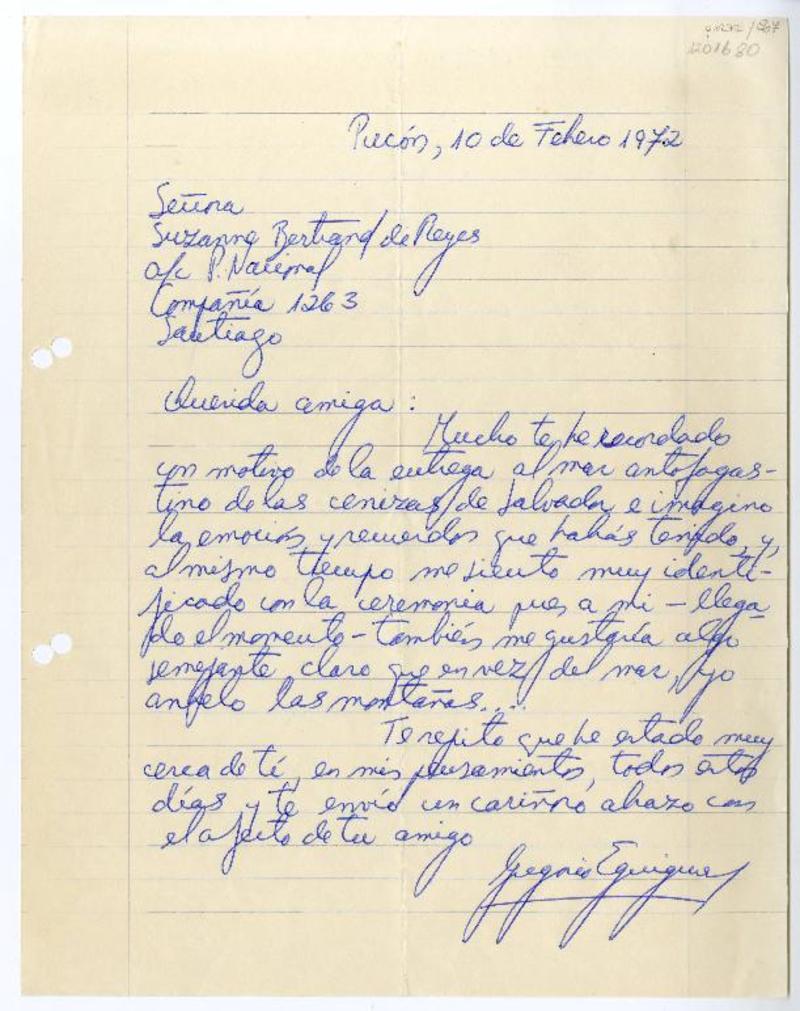 1201680
Pucón, 10 de Febrero 1972
Señora
Suzanne Bertrand de Reyes
a/c P. Nacional
Compañía 1263
Santiago
Querida amiga :
Mucho te he recordado
con motivo de la entrega al mar antofagas-
tino de las cenizas de Salvador, e imagino
la emoción y recuerdos que habás tenido, y,
al mismo tiempo me siento muy identi-
ficado con la ceremonia pues a mi - llega
do el momento - también me gustaría algo
semejante claro que en vez de mar, yo
anhelo las montañas....
Te repito que he estado muy
cerca de tí, en mis pensamientos, todos estos
días y te envío un cariñoso abrazo con
el afecto de tu amigo
Gregorio Eguiguren